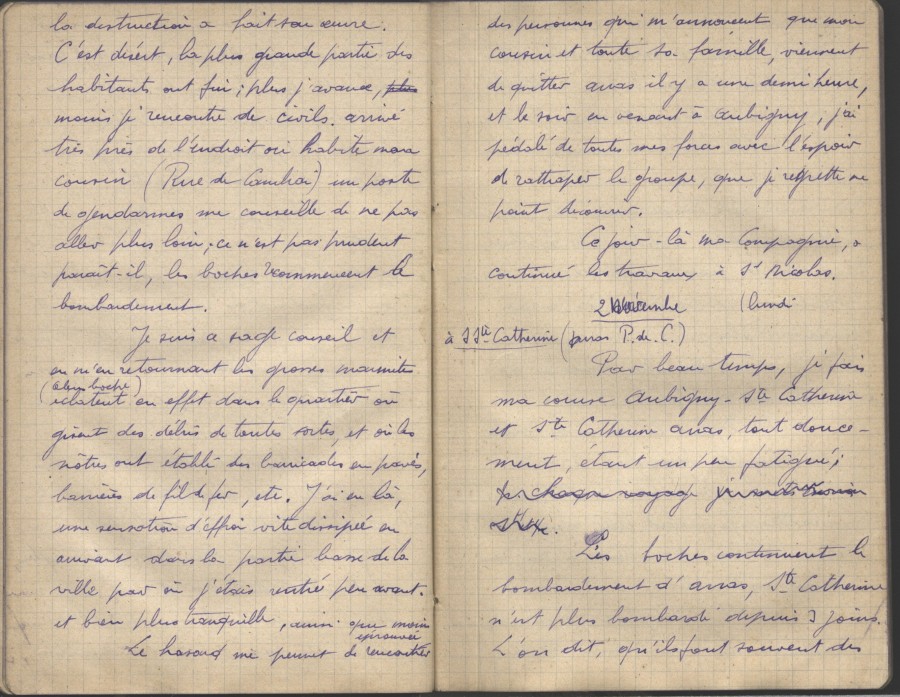 la destruction a fait son œuvre.
C'est désert, la plus grande partie des
habitants ont fui ; plus j'avance, plus
moins je rencontre de civils. arrivé
très près de l'endroit où habite mon
cousin (Rue de Cambrai) un poste
de gendarmes me conseille de ne pas
aller plus loin ; ce n'est pas prudent
parait-il, les boches recommencent le
bombardement.
Je suis ce sage conseil et
en m'en retournant les grosses marmites
(obus boche)
éclatent en effet dans le quartier où
gisent des débris de toutes sortes, et où les
nôtres ont établi des barricades en pavés,
barrières de fil de fer, etc. J'ai eu là,
une sensation d'effroi vite dissipée en
arrivant dans la partie basse de la
ville par où j'étais rentré peu avant.
et bien plus tranquille, ainsi que moins
éprouvée
Le hasard me permet de rencontrer
des personnes qui m'annoncent que mon
cousin et toute sa famille, viennent
de quitter arras il y a une demi heure,
et le soir en venant à Aubigny, j'ai
pédalé de toutes mes forces avec l'espoir
de rattraper le groupe, que je regrette ne
point découvrir.
Ce jour-là ma Compagnie, a
continué les travaux à St Nicolas.
2 (lundi
à Ste Catherine (arras P. de C.)
Par beau temps, je fais
ma course Aubigny - Ste Catherine
et Ste Catherine arras, tout douce-
ment, étant un peu fatigué ;
Les boches continuent le
bombardement d'arras, Ste Catherine
n'est plus bombardé depuis 3 jours.
L'on dit, qu'ils font souvent des